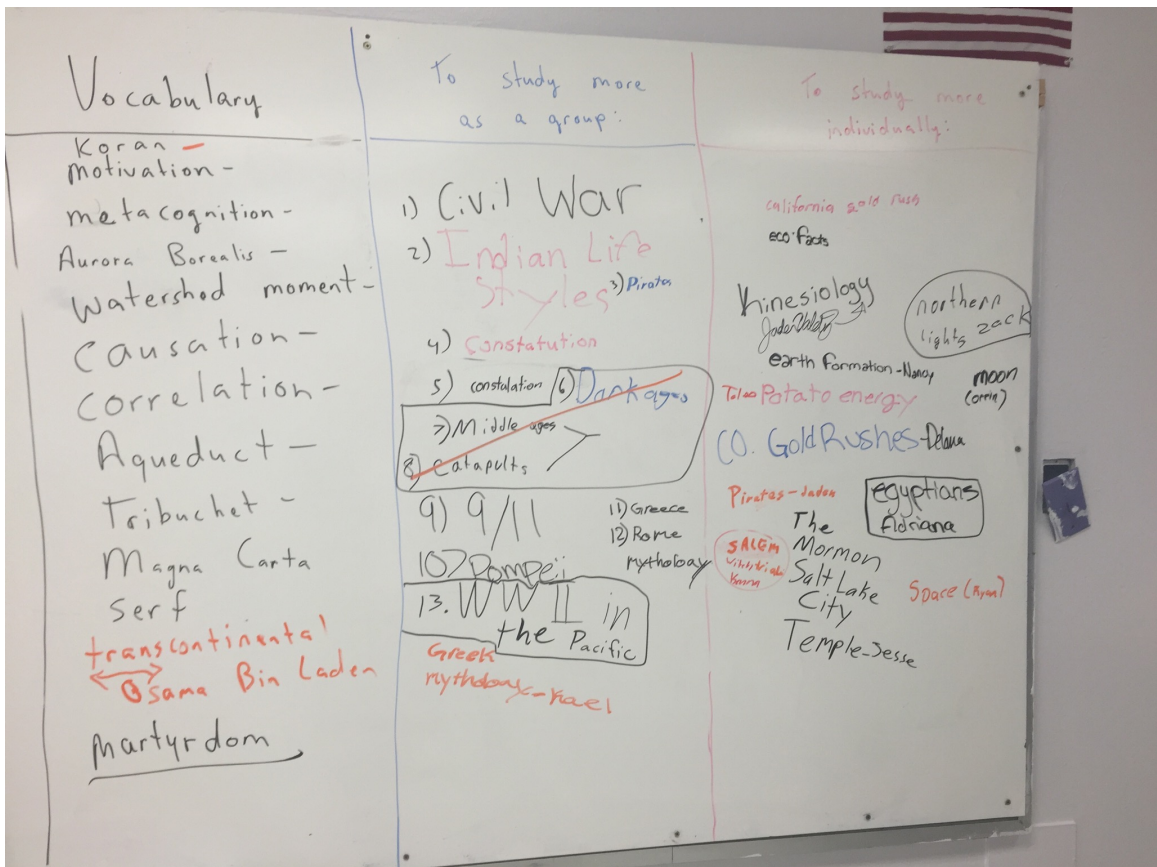 Vocabulary
Koran –
motivation –
metacognition –
Aurora Borealis –
Watershed moment –
Causation –
Correlation –
Aqueduct –
Tribuchet –
Magna Carta
Serf
transcontinental
Osama Bin Laden
Martyrdom
To study more
as a group:
1) Civil War
2) Indian Life
Styles
3) Pirates
4) Constatution
5) constalation
6) Dark ages
7) Middle ages
8) Catapults
9) 9/11
10) Pompeii
11) Greece
12) Rome
mythology
13. WW II in
the Pacific
Greek
Mythology – Kael
To study more
individually:
california gold rush
eco-facts
Kinesiology
northern
lights zack
earth formation – Nancy
moon
(orrin)
Potato energy
CO. Gold Rushes – Delana
Pirates – Jaden
egyptians
Adriana
SALEM
The
Mormon
Salt Lake
City
Temple – Jesse
Space (Ryan)